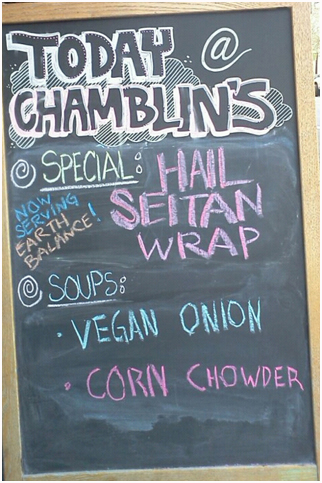 TODAY @
CHAMBLIN'S
SPECIAL:
HAIL
SEITAN
WRAP
NOW
SERVING
EARTH
BALANCE!
SOUPS:
· VEGAN ONION
· CORN CHOWDER